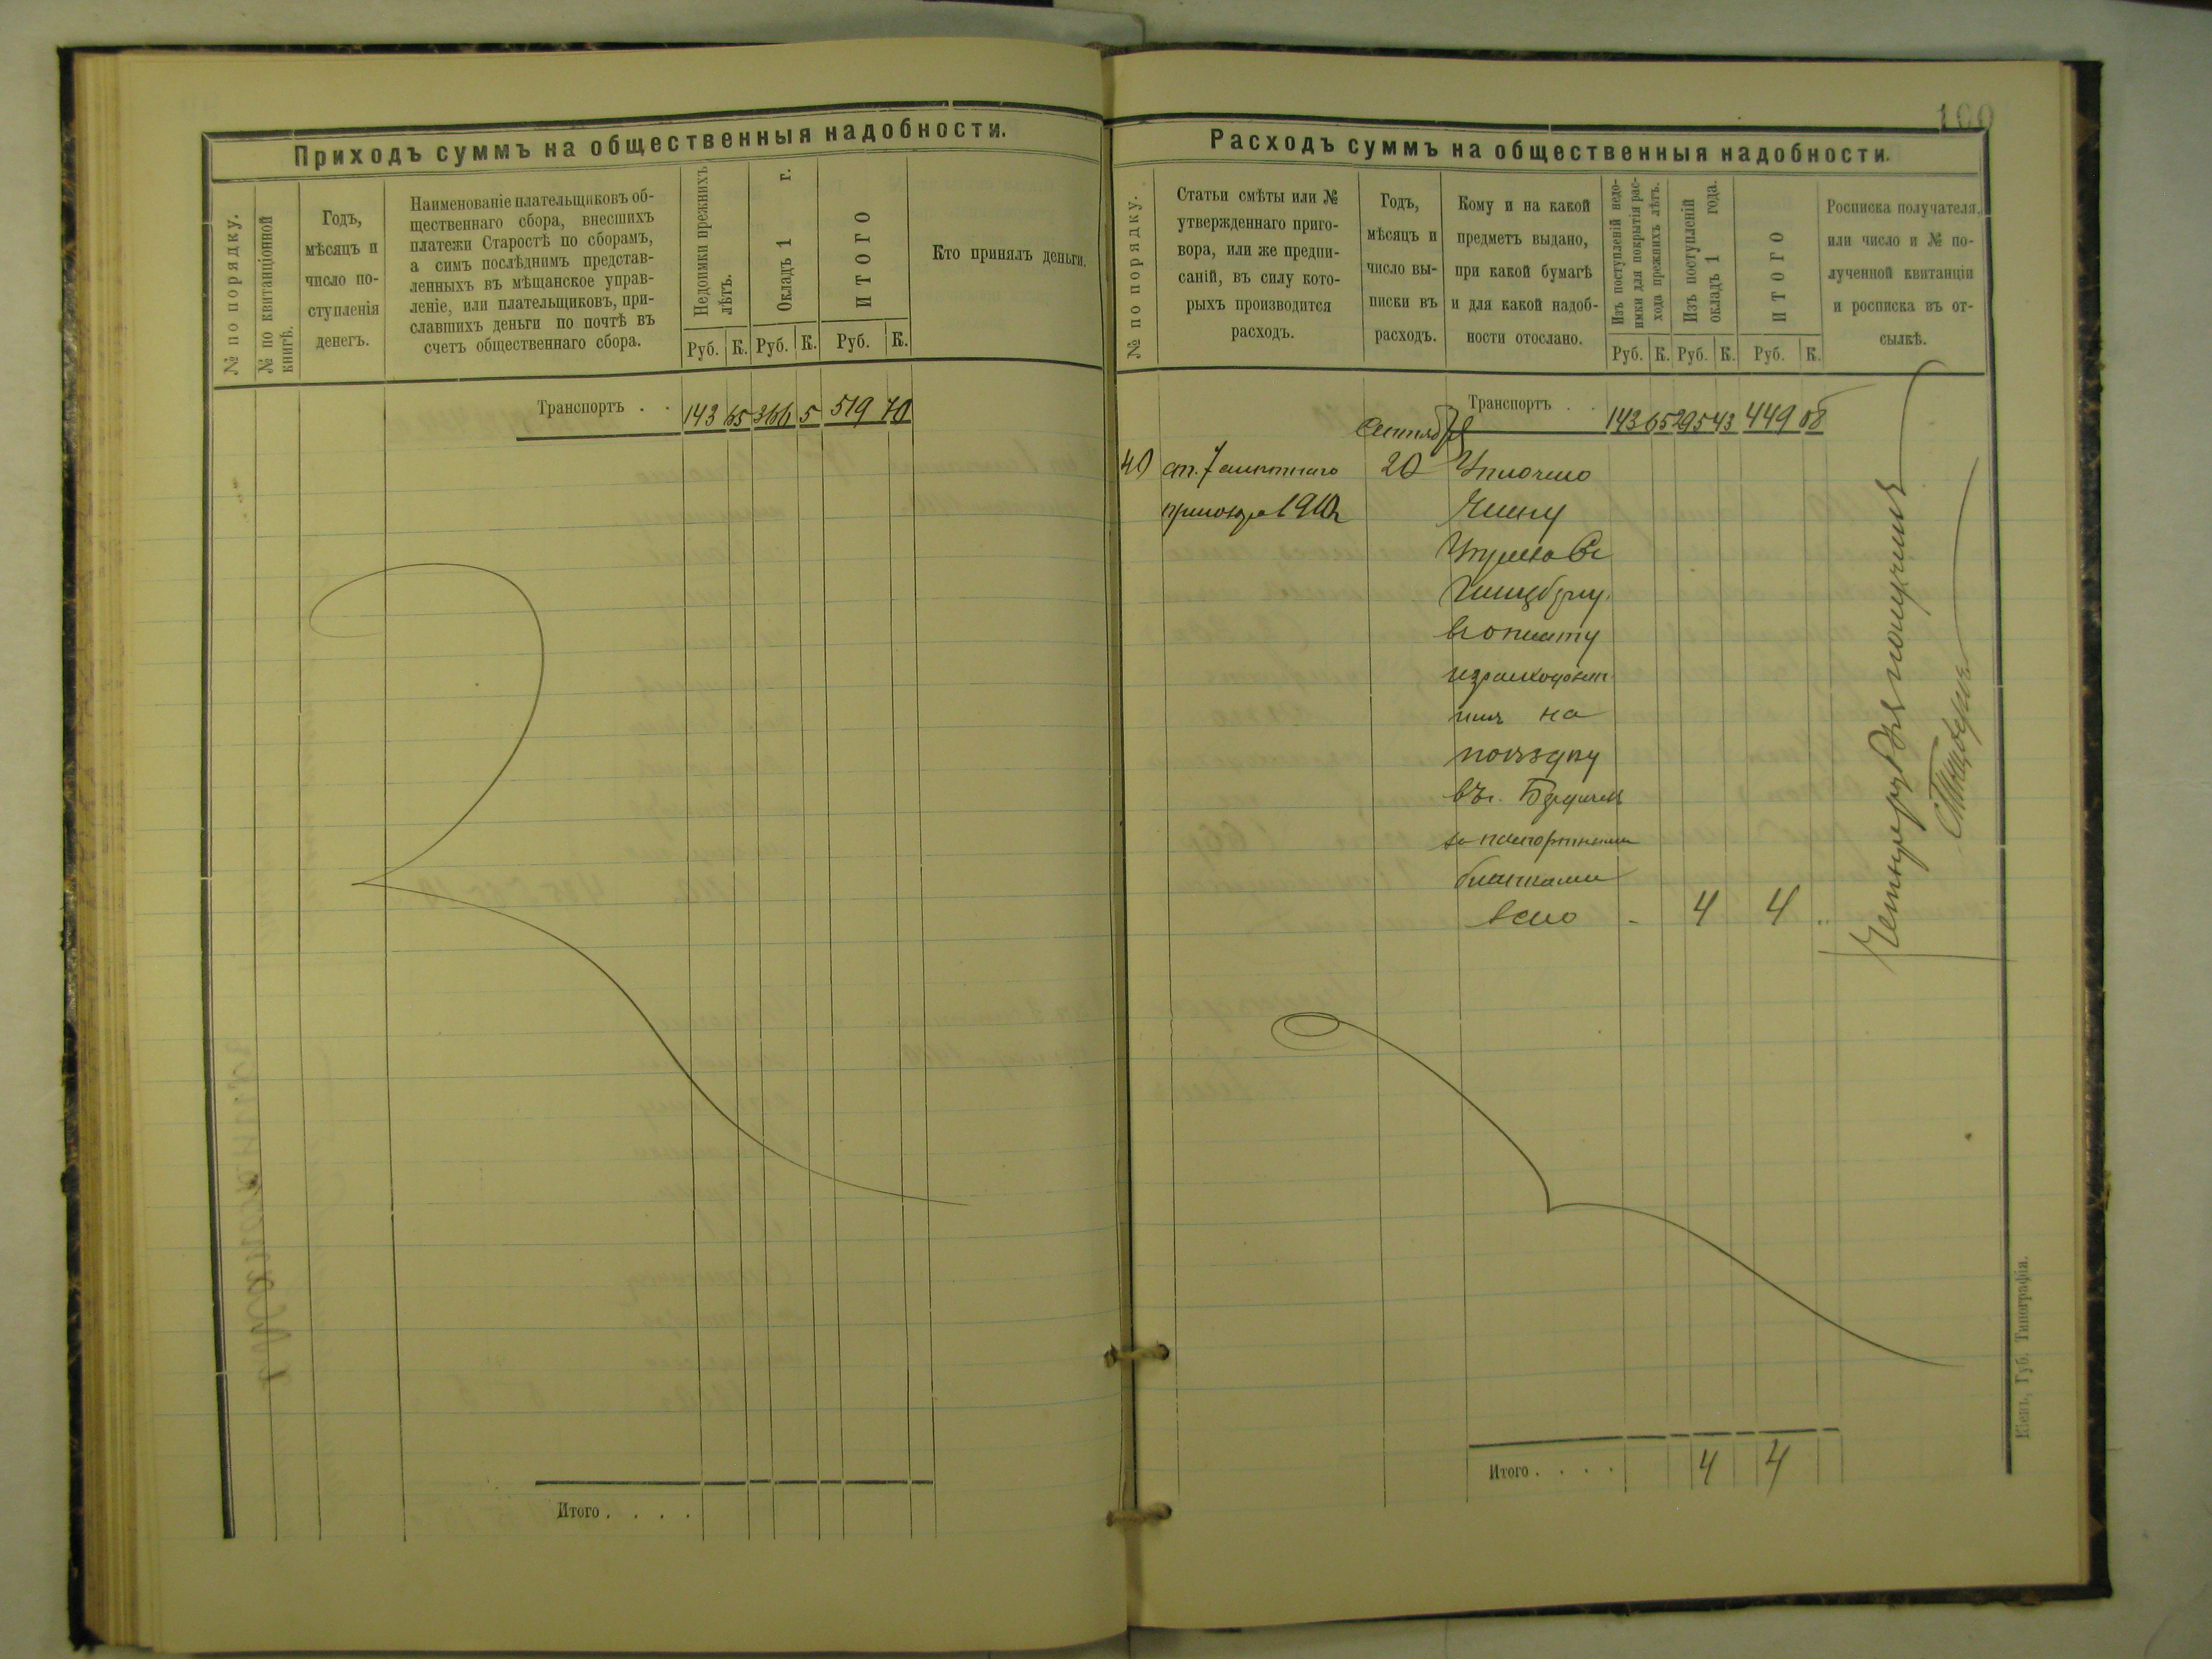 Приходъ суммъ на общественныя надобности.
№ по порядку.
№ по квитанціонной
книгѣ.
Годъ,
мѣсяцъ и
число по-
ступленія
денегъ.
Наименованіе плательщиковъ об-
щественнаго сбора, внесшихъ
платежи Старостѣ по сборамъ,
а симъ послѣднимъ представ-
ленныхъ въ мѣщанское управ-
леніе, или плательщиковъ, при-
славшихъ деньги по почтѣ въ
счетъ общественнаго сбора.
Недоимки прежнихъ
лѣтъ.
Окладъ 1 г.
ИТОГО
Руб. К. Руб. К. Руб. К.
Кто принялъ деньги.
Транспортъ . . 143 65 366 5 519 70
Итого . . . .
100
Расходъ суммъ на общественныя надобности.
№ по порядку.
Статьи смѣты или №
утвержденнаго приго-
вора, или же предпи-
саній, въ силу кото-
рыхъ производится
расходъ.
Годъ,
мѣсяцъ и
число вы-
писки въ
расходъ.
Кому и на какой
предметъ выдано,
при какой бумагѣ
и для какой надоб-
ности отослано.
Изъ поступленій недо-
имки для покрытія рас-
хода прежнихъ лѣтъ.
Изъ поступленій
окладъ 1 года.
ИТОГО
Руб. К. Руб. К. Руб. К.
Росписка получателя,
или число и № по-
лученной квитанціи
и росписка въ от-
сылкѣ.
Транспортъ . . 143 65 295 43 449 08
Сентября
40 ст. 7 смѣтнаго 20 Уплочено
1910
Члену
Управы
въ оплату
израсходован
ныя на
поѣздку
въ г. Бердичев
за паспортными
бланками
всего - 4 4 "
Четыре руб. получилъ
Итого . . . . 4 4
Кіевъ, Губ. Типографія.